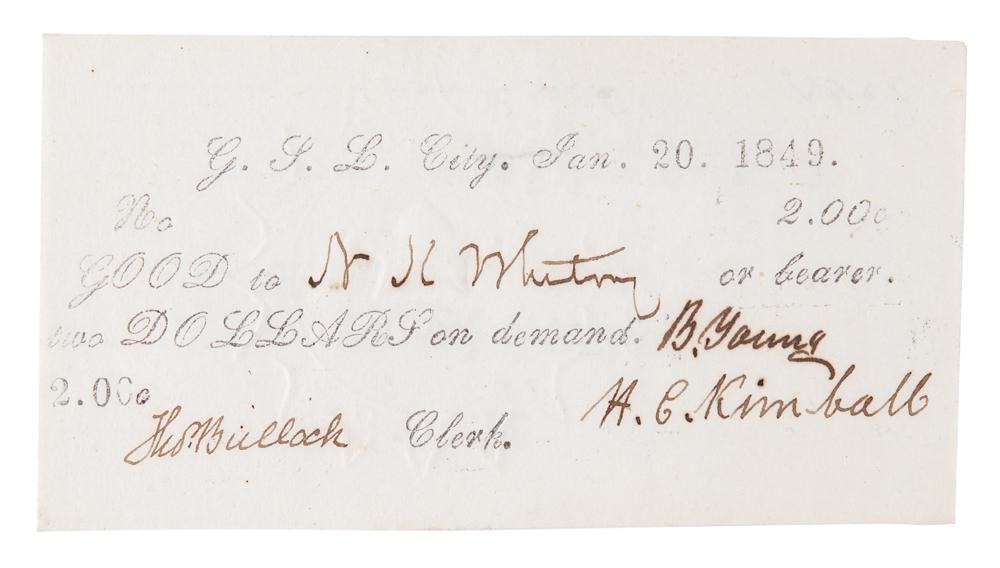 G. S. L. City. Jan. 20. 1849.
No 2.00c
GOOD to N K Whitney or bearer.
two DOLLARS on demand. B. Young
2.00c H. C. Kimball
Thos. Bullock Clerk.